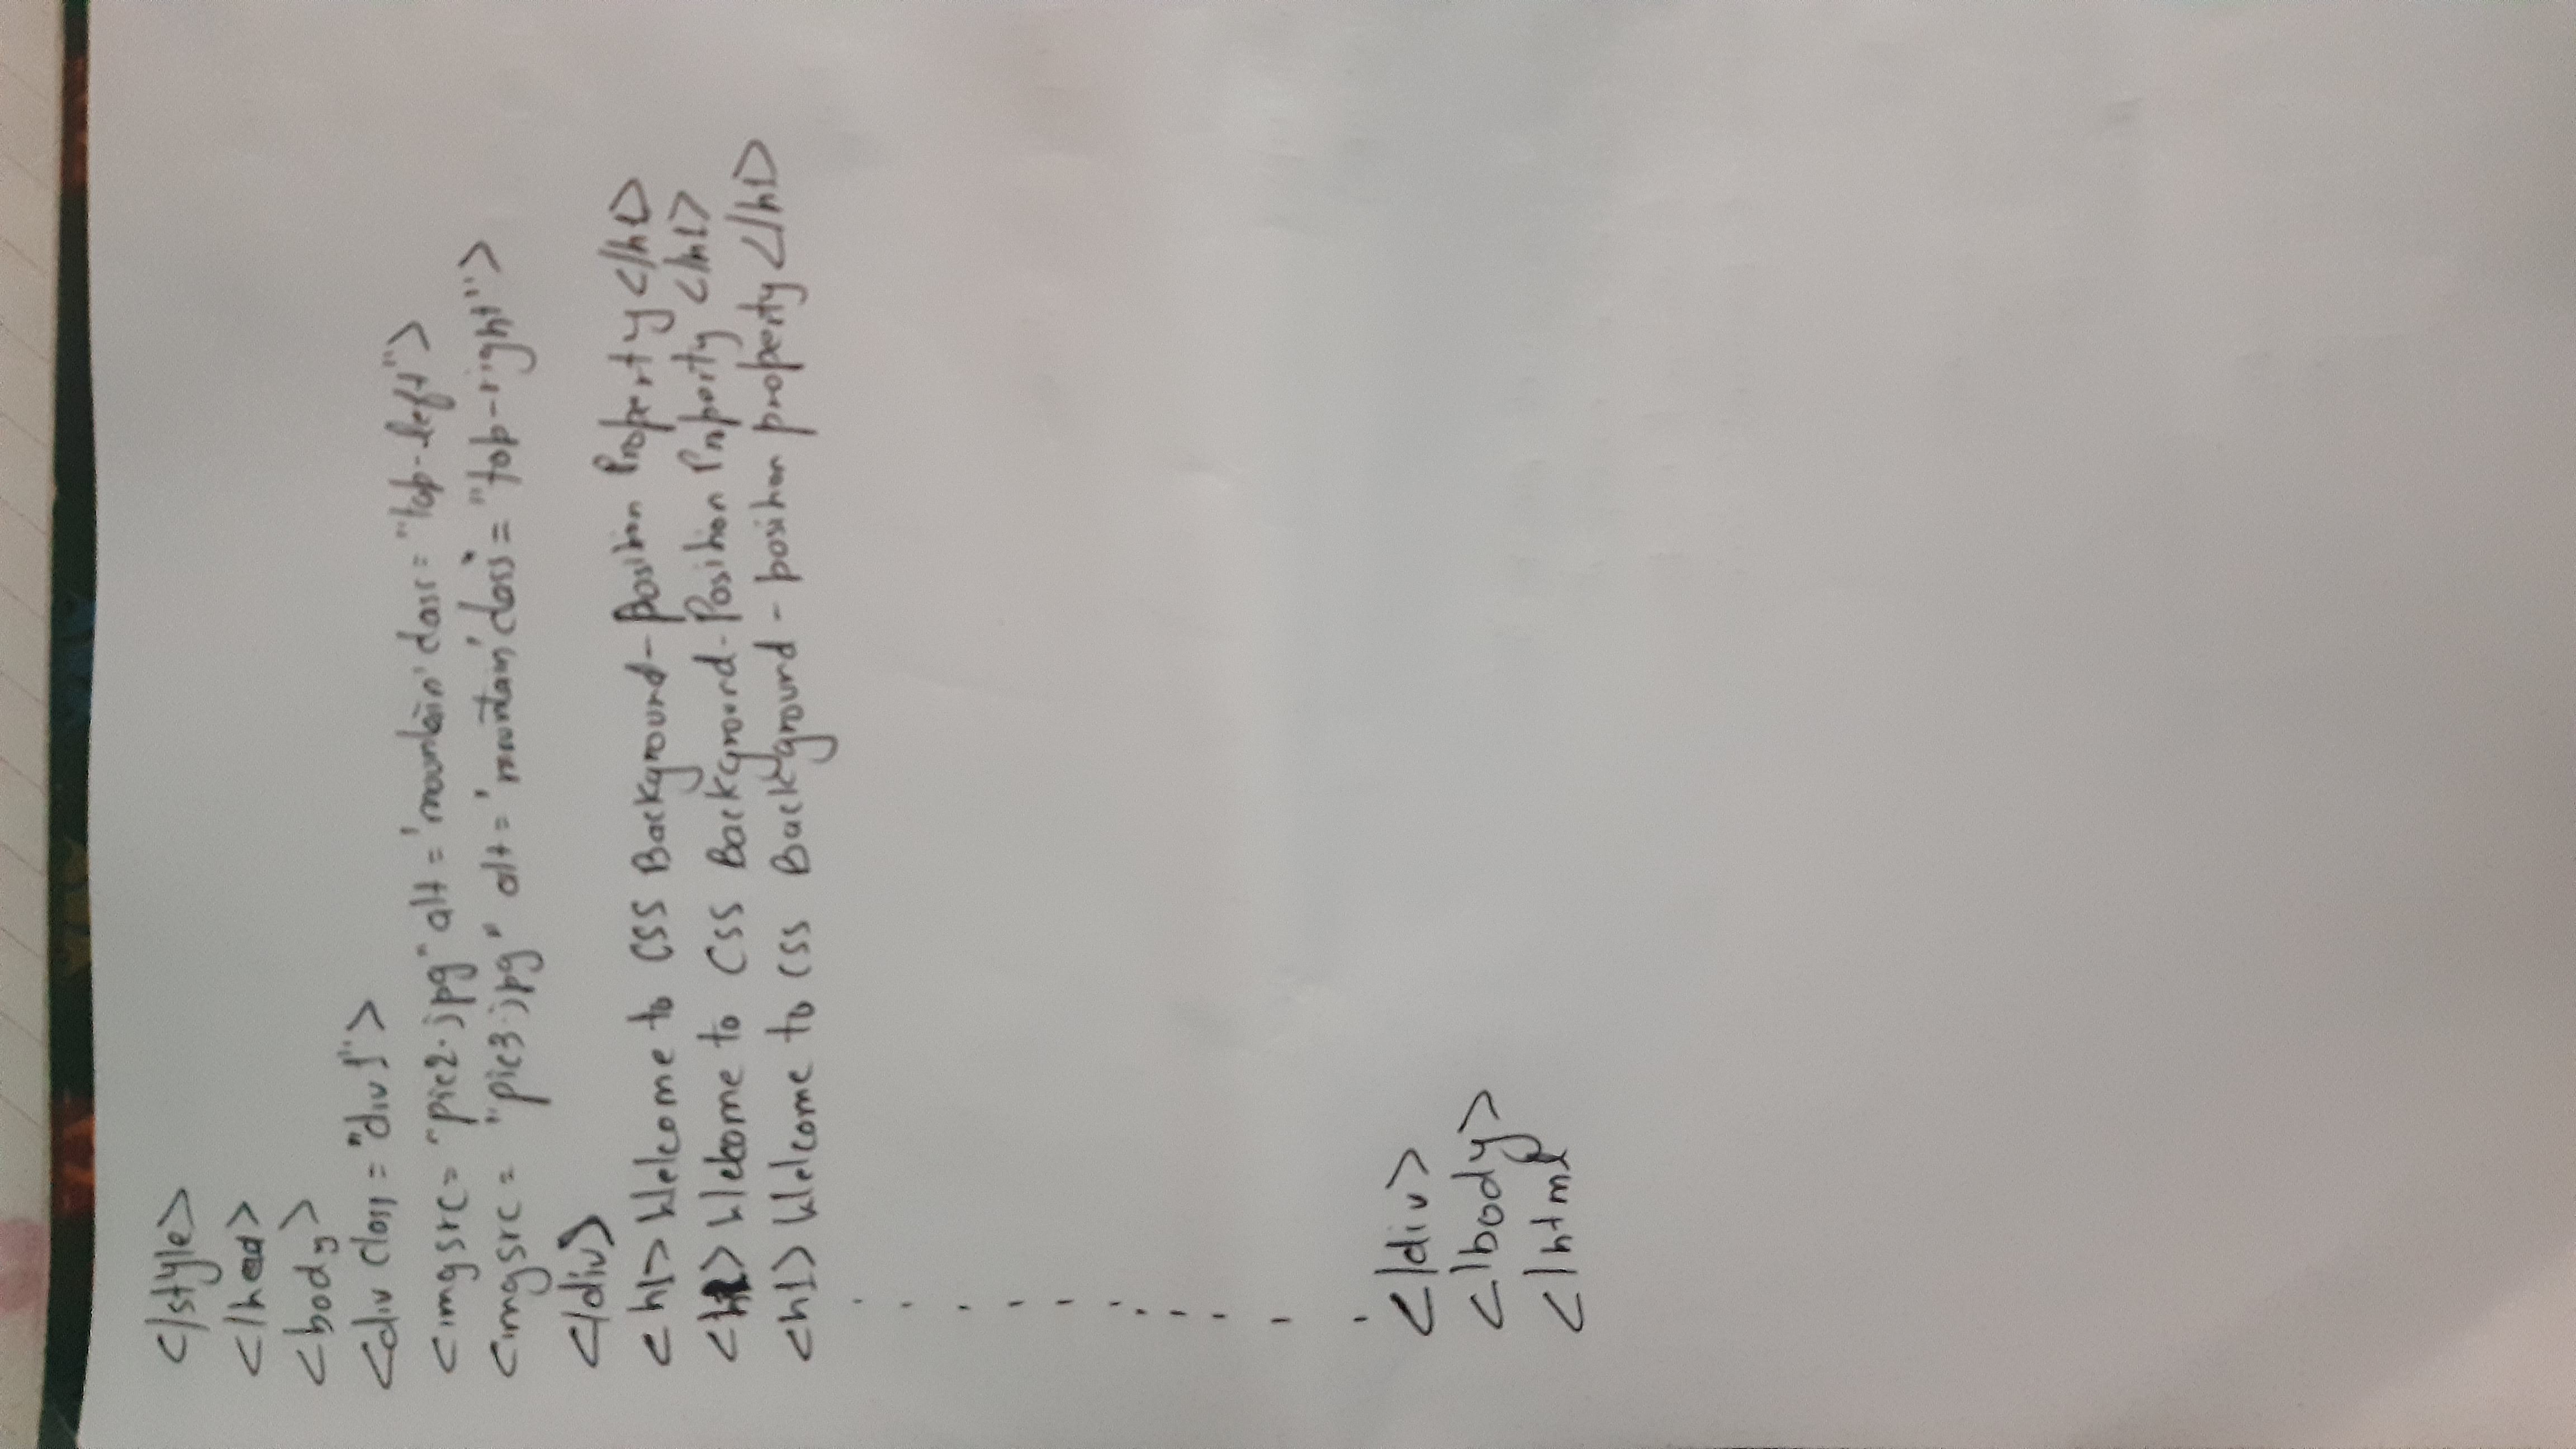 </style>
</head>
<body>
<div class = "div1">
<img src = "pic2.jpg" alt = 'mountain' class = "top-left">
<img src = "pic3.jpg" alt = 'mountain' class = "top-right">
</div>
<h1> Welcome to CSS Background-Position Property </h1>
<h1> Welcome to CSS Background-Position Property </h1>
<h1> Welcome to CSS Background-position property </h1>
</div>
</body>
</html